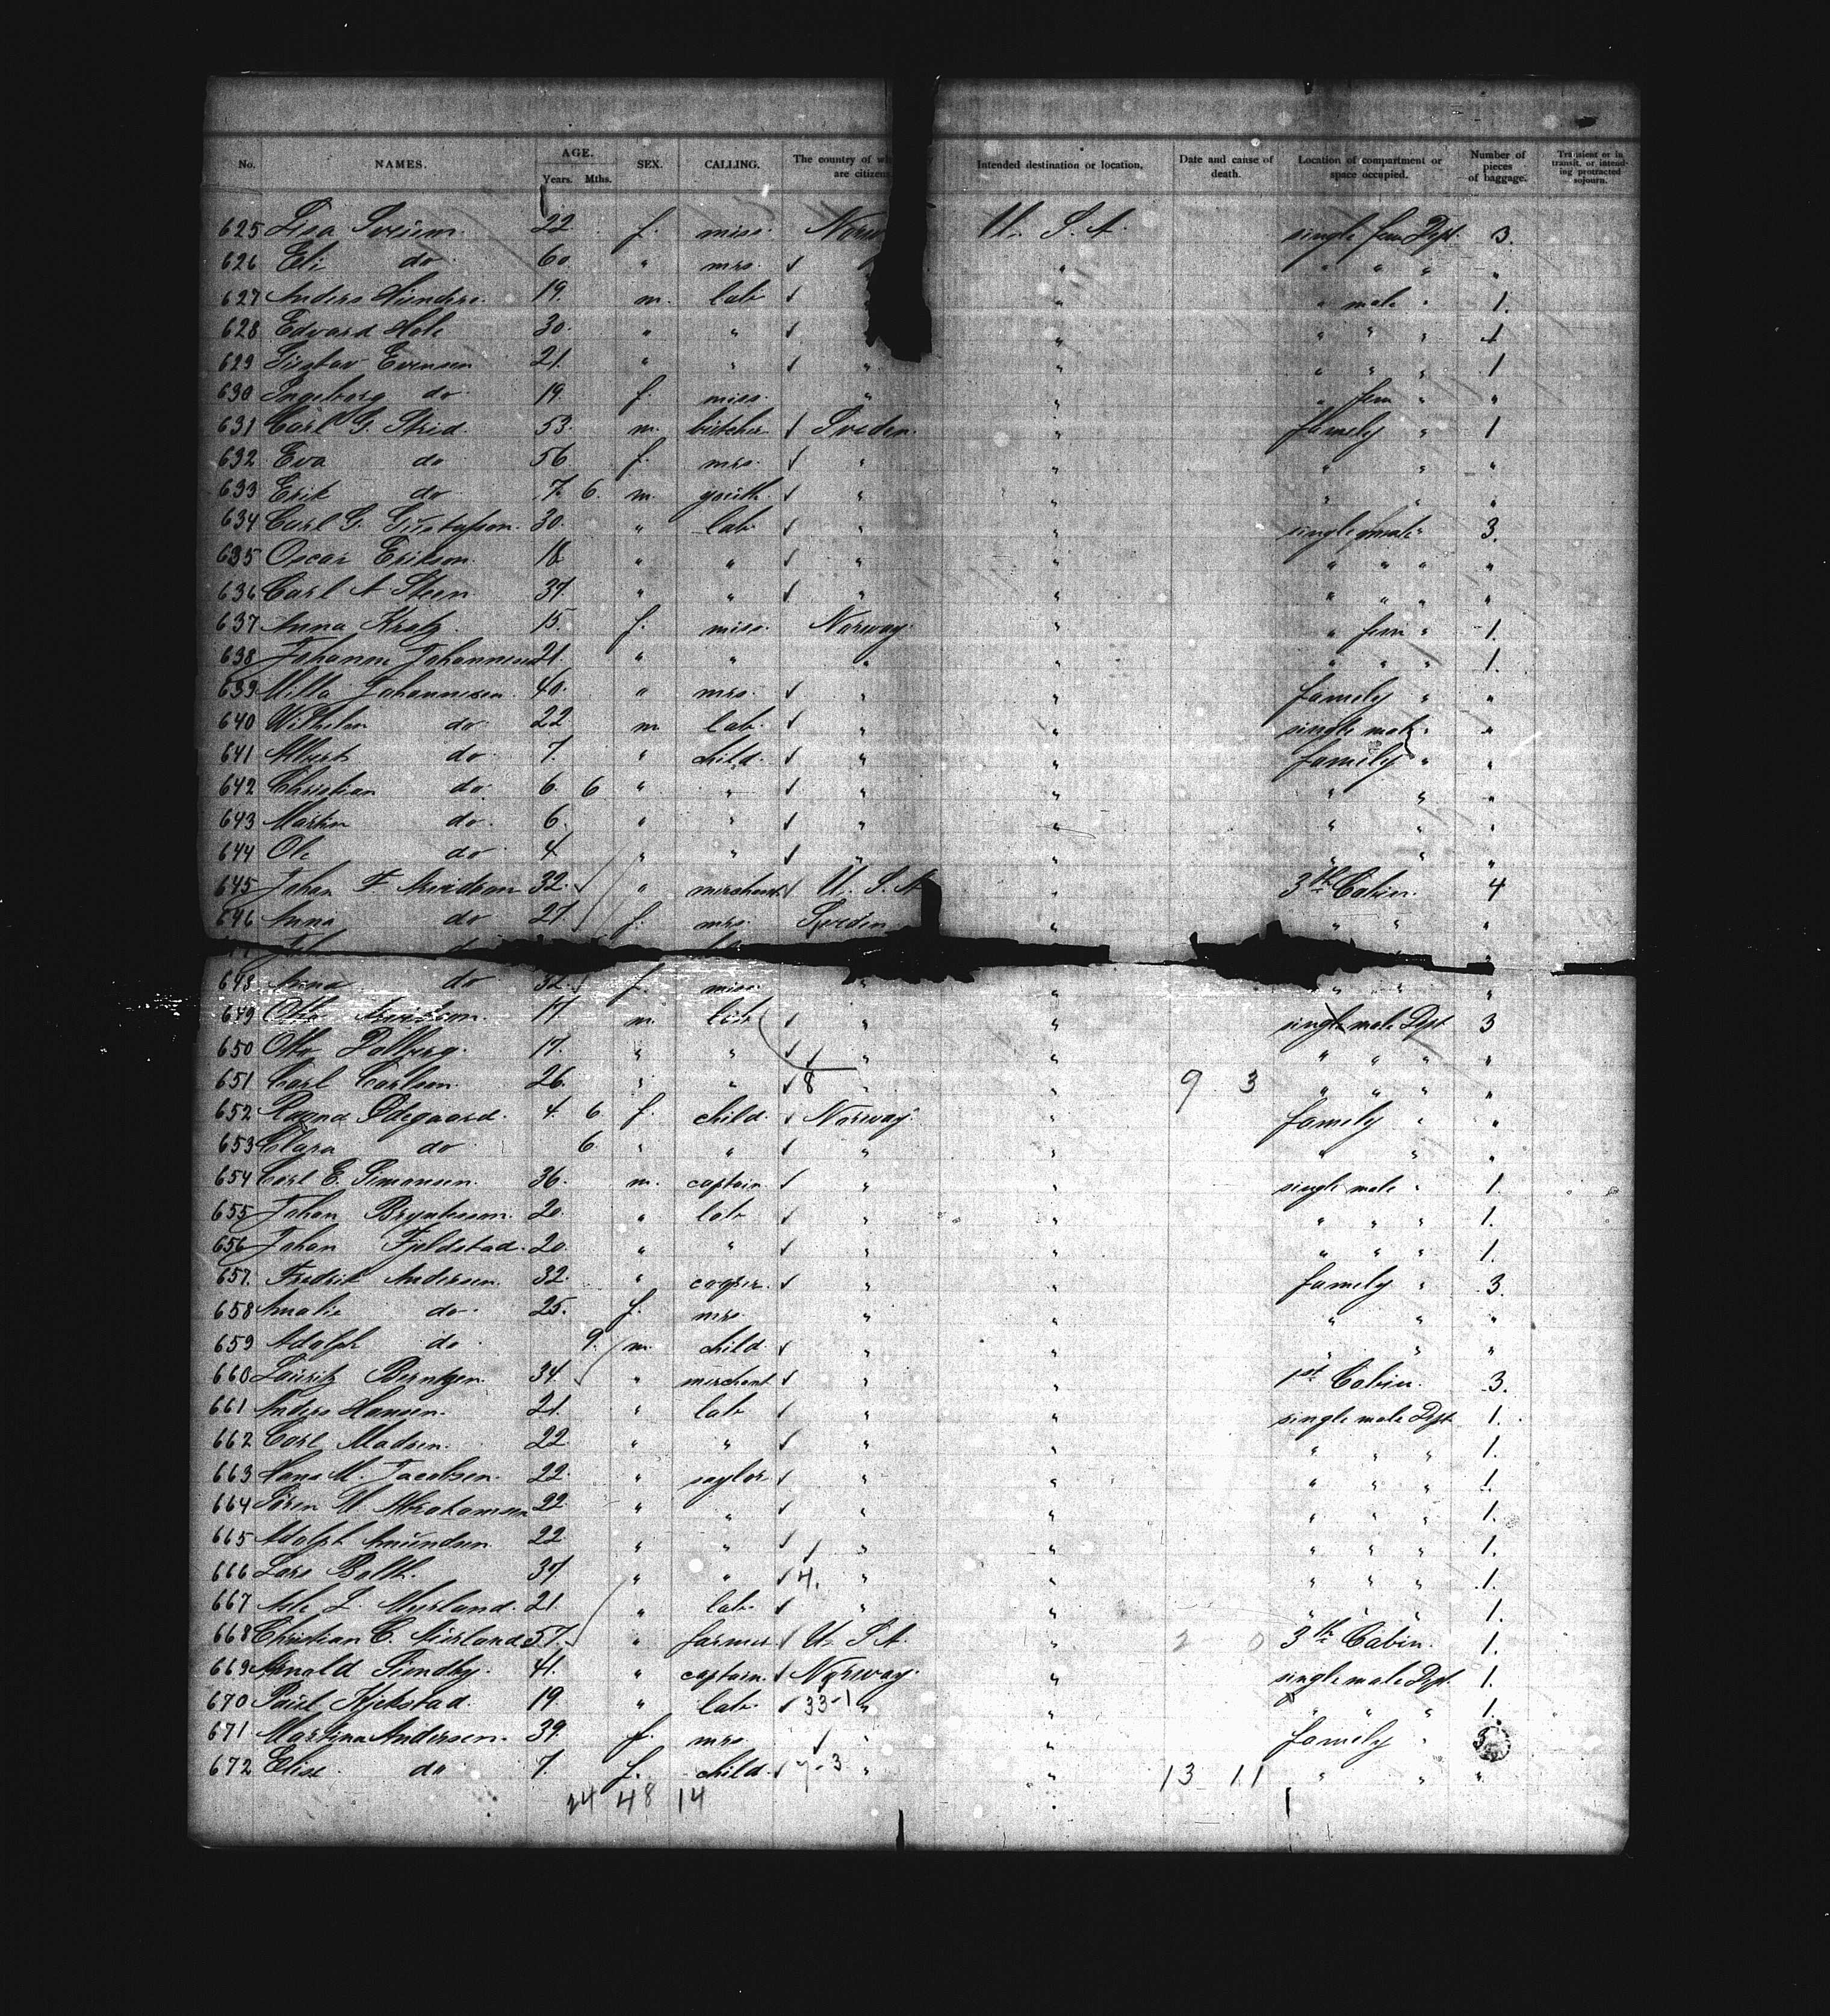 No. NAMES. AGE. Years. Mths. SEX. CALLING. The country of wh are citizens Intended destination or location. Date and cause of death. Location of compartment or space occupied. Number of pieces of baggage. Transient or in transit, or intending protracted sojourn.
625 Lisa 22 f. miss. Norw U. S. A. single fem Dept. 3.
626 Eli do 60 " mrs. " " " " "
627 Anders 19. m. lab " " male " 1.
628 Edvard Hole 30. " " " " " " 1
629 Gustav Evensen 21. " " " " " " " 1
630 Ingeborg do 19. f. miss. " " " fem " "
631 Carl G. Strid. 53. m. butcher Sveden. " family " 1
632 Eva do 56 f. mrs. " " " " "
633 Erik do 7. 6. m. youth. " " " " "
634 Carl G. Gustafson. 30. " lab " " single male " 3.
635 Oscar Erikson. 18. " " " " " " " "
636 Carl A Steen 37. " " " " " " " "
637 Anna Kratz. 15. f. miss. Norway. " " fem " 1.
638 Johanne Johannesen 21. " " " " " " " 1.
639 Milla Johannesen. 40. " mrs. " " family " "
640 Wilhelm do 22 m lab. " " single male " "
641 Albert do 7. " child. " " family " "
642 Christian do 6. 6 " " " " " " "
643 Martin do 6. " " " " " " "
644 Ole do 4 " " " " " " "
645 Johan F Arvidson 32. " merchant U. S. A. " 3th Cabin. 4
646 Anna do 27. f. mrs. Sveden " " " "
do
648 Anna do 32. f. miss. " " " " "
649 Otto Arvidson. 17 m. lab " " single male Dept 3
650 Otto Dalberg. 17. " " " " " " " "
651 Carl Carlson. 26. " " 8 " " 9 3 " " " "
652 Ragna Ødegaard. 4. 6. f. child Norway. " family " "
653 Clara do 6 " " " " " " "
654 Carl E. Simonsen. 36. m. captain " " single male " 1.
655 Johan 20. " lab " " " " " 1.
656 Johan Fjeldstad. 20. " " " " " " " 1.
657. Fredrik Andersen. 32. " cooper. " " family " 3.
658 Amalie do 25. f. mrs. " " " " "
659 Adolph do 9. m. child " " " " "
660 Lauritz Berntzen. 34. " merchant " " 1st Cabin. 3.
661 Anders Hansen. 21. " lab " " single male Dept 1.
662 Carl Madsen. 22 " " " " " " " 1.
663 Hans M. Jacobsen. 22. " saylor " " " " " 1.
664 Sören M Abrahamsen 22 " " " " " " " 1.
665 Adolph Amundsen 22 " " " " " " " 1.
666 Lars Bolth. 37 " " 4. " " " " " 1.
667 L. 21. " lab. " " " " " 1.
668 Christian C. 57. " farmer U. S A. " 2 0 3th Cabin. 1.
669 Arnold Sundby. 41. " captain. Norway. " single male Dept. 1.
670 Paul 19 " lab. 33-1 " " " " " 1.
671 Martina Andersen. 39. f. mrs " " family " 3
672 Elise do 7. f. child. 7-3 " " 13 11 " " "
24 48 14